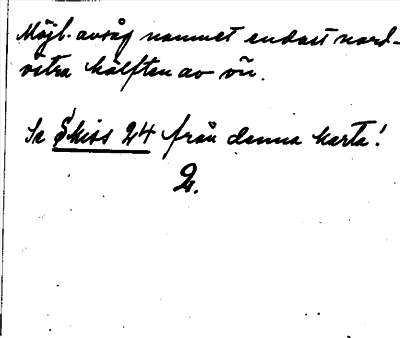 Möjl. avsåg namnet endast nord-
östra hälften av ön.
Se Skiss 24 från denna karta!
2.